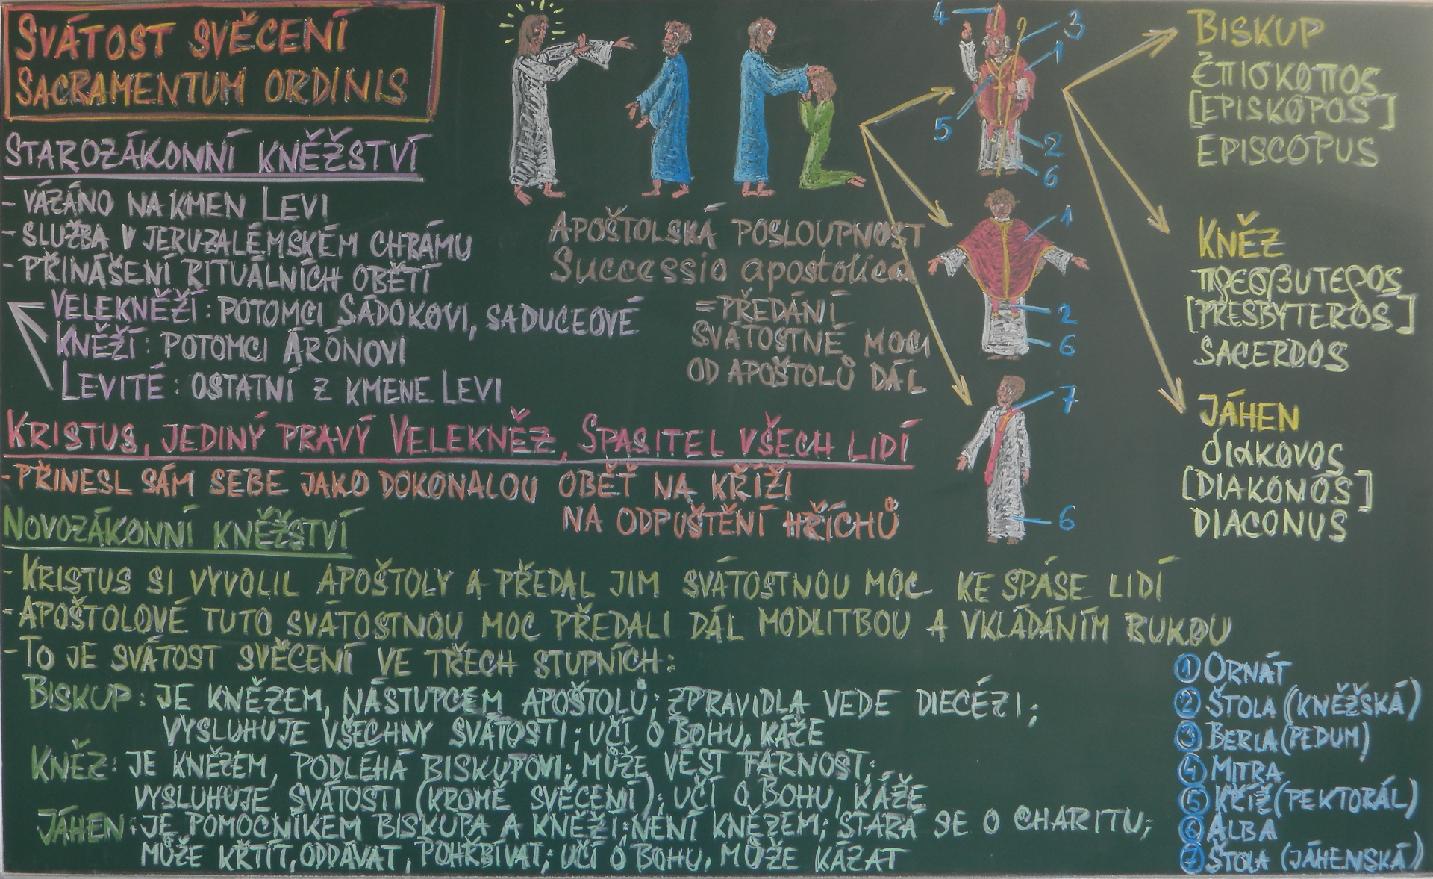 SVÁTOST SVĚCENÍ
SACRAMENTUM ORDINIS
STAROZÁKONNÍ KNĚŽSTVÍ
- VÁZÁNO NA KMEN LEVI
- SLUŽBA V JERUZALÉMSKÉM CHRÁMU
- PŘINÁŠENÍ RITUÁLNÍCH OBĚTÍ
VELEKNĚŽÍ: POTOMCI SÁDOKOVI, SADUCEOVÉ
KNĚŽÍ: POTOMCI ÁRÓNOVI
LEVITÉ: OSTATNÍ Z KMENE LEVI
APOŠTOLSKÁ POSLOUPNOST
Successio apostolica
=PŘEDÁNÍ
SVÁTOSTNÉ MOCI
OD APOŠTOLŮ DÁL
4 2 3
1
5
2
6
1
2
6
7
6
BISKUP
ἐπισκοπος
[EPISKOPOS]
EPISCOPUS
KNĚZ
πρεσβυτερος
[PRESBYTEROS]
SACERDOS
JÁHEN
διακονος
[DIAKONOS]
DIACONUS
KRISTUS, JEDINÝ PRAVÝ VELEKNĚZ, SPASITEL VŠECH LIDÍ
- PŘINESL SÁM SEBE JAKO DOKONALOU OBĚŤ NA KŘÍŽI
NA ODPUŠTĚNÍ HŘÍCHŮ
NOVOZÁKONNÍ KNĚŽSTVÍ
- KRISTUS SI VYVOLIL APOŠTOLY A PŘEDAL JIM SVÁTOSTNOU MOC KE SPÁSE LIDÍ
- APOŠTOLOVÉ TUTO SVÁTOSTNOU MOC PŘEDALI DÁL MODLITBOU A VKLÁDÁNÍM RUKOU
- TO JE SVÁTOST SVĚCENÍ VE TŘECH STUPNÍCH:
BISKUP: JE KNĚZEM, NÁSTUPCEM APOŠTOLŮ; ZPRAVIDLA VEDE DIECÉZI;
VYSLUHUJE VŠECHNY SVÁTOSTI; UČÍ O BOHU, KÁŽE
KNĚZ: JE KNĚZEM, PODLÉHÁ BISKUPOVI; MŮŽE VÉST FARNOST;
VYSLUHUJE SVÁTOSTI (KROMĚ SVĚCENÍ); UČÍ O BOHU, KÁŽE
JÁHEN: JE POMOCNÍKEM BISKUPA A KNĚŽÍ; NENÍ KNĚZEM; STARÁ SE O CHARITU;
MŮŽE KŘTÍT, ODDÁVAT, POHŘBÍVAT; UČÍ O BOHU, MŮŽE KÁZAT
1 ORNÁT
2 ŠTOLA (KNĚŽSKÁ)
3 BERLA (PEDUM)
4 MITRA
5 KŘÍŽ (PEKTORÁL)
6 ALBA
7 ŠTOLA (JÁHENSKÁ)